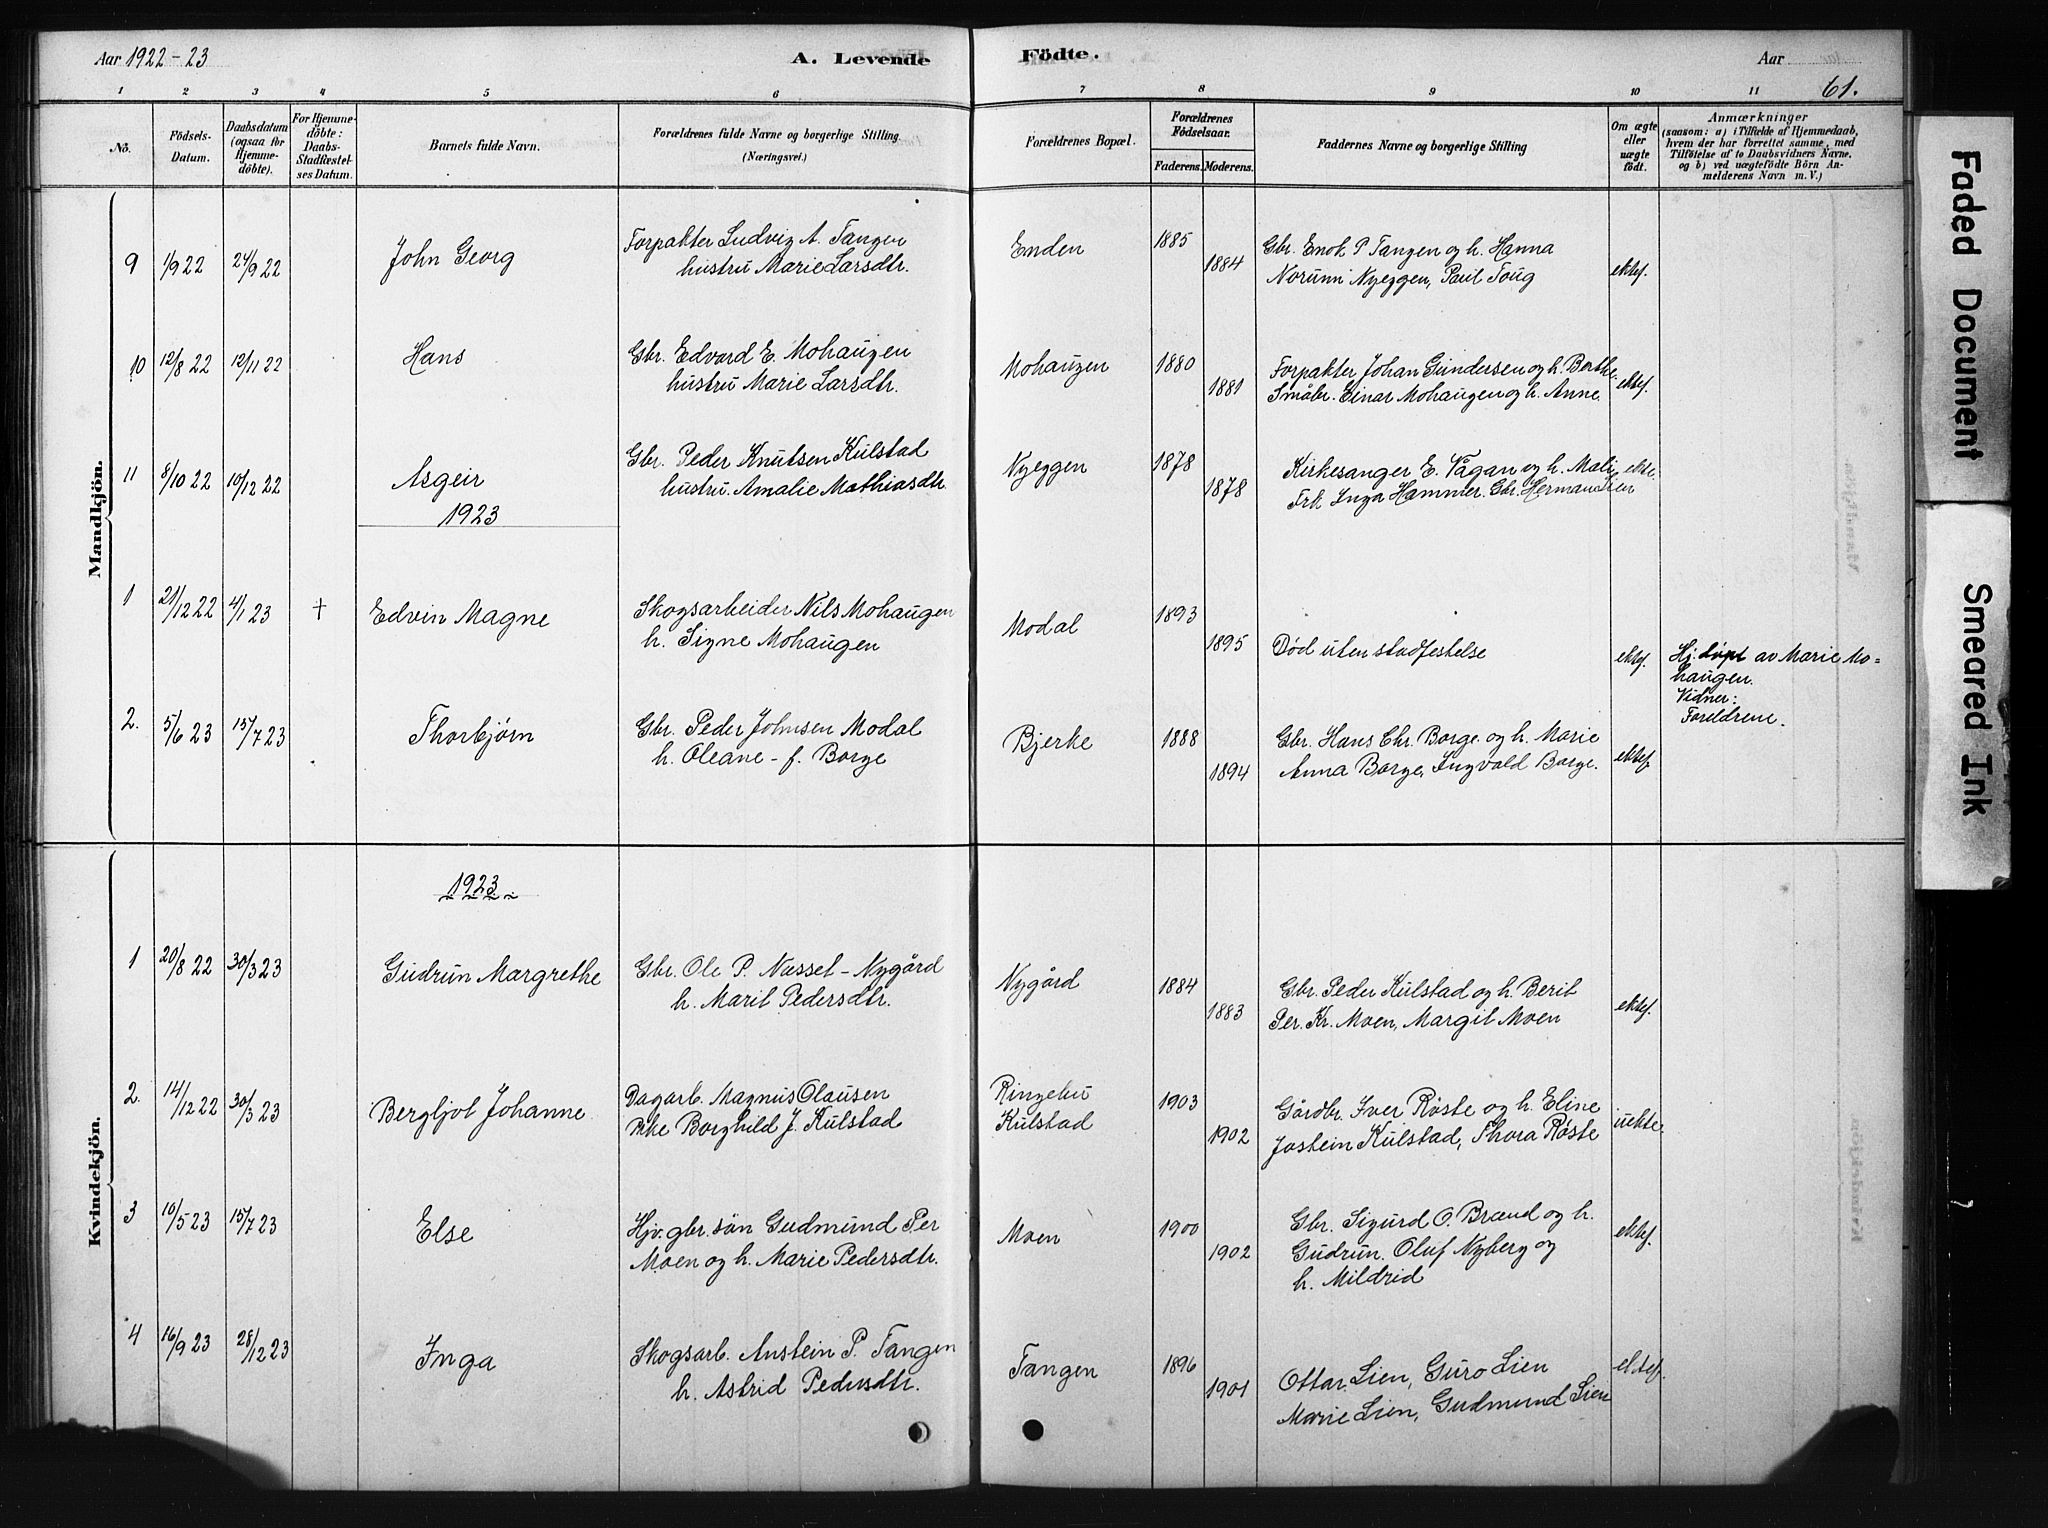 Aar 1922-23
A. Levende
Födte.
Aar
61.
1 2 3 4 5 6 7 8 9 10 11
No.
Födsels-
Datum.
Daabsdatum
(ogsaa for
Hjemme-
döbte).
For Hjemme-
döbte:
Daabs-
Stadfæstel-
ses Datum.
Barnets fulde Navn.
Forældrenes fulde Navne og borgerlige Stilling
(Næringsvei.)
Forældrenes Bopæl.
Forældrenes
Födselsaar.
Faderens. Moderens.
Faddernes Navne og borgerlige Stilling
Om ægte
eller
uægte
födt.
Anmærkninger
(saasom: a) i Tilfælde af Hjemmedaab,
hvem der har forrettet samme, med
Tilföielse af to Daabsvidners Navne,
og b) ved uægtefödte Börn An-
melderens Navn m. V.)
Mandkjön.
9 1/9 22 24/9 22 John Georg
Forpakter Ludvig A. Tangen
hustru Marie Larsdtr.
Enden 1885 1884
Gbr. Enok P Tangen og h. Hanna
Norunn Nyeggen, Paul Toug
ektef.
10 12/8 22 12/11 22 Hans
Gbr. Edvard E. Mohaugen
hustru Marie Larsdtr.
Mohaugen 1880 1881
Forpakter Johan Gundersen og h. Berthe.
Småbr. Einar Mohaugen og h. Anne.
ektef.
11 8/10 22 10/12 22 Asgeir
Gbr. Peder Knutsen Kulstad
hustru. Amalie Mathiasdtr.
Nyeggen 1878 1878
Kirkesanger E. Vågan og h. Mali
Frk Inga Hammer. Gbr. Herman Lien
ekte.
1923
1 21/12 22 4/1 23 + Edvin Magne
Skogsarbeider Nils Mohaugen
h. Signe Mohaugen
Modal 1893 1895
Död uten stadfestelse
ektef.
Hj. døpt av Marie Mo=
haugen.
Vidner:
Foreldrene.
2. 5/6 23 15/7 23 Thorbjørn
Gbr. Peder Johnsen Modal
h. Oleane - f. Borge
Bjerke 1888 1894
Gbr. Hans Chr. Borge. og h. Marie
Anna Borge, Ingvald Borge.
ektef.
Kvindekjön.
1923
1 20/8 22 30/3 23 Gudrun Margrethe
Gbr. Ole P. Nesset - Nygård
h. Marit Pedersdtr.
Nygård 1884 1883
Gbr. Peder Kulstad og h. Berit
Per. Kr. Moen, Margit Moen
ektef.
2. 14/12 22 30/3 23 Bergljot Johanne
Dagarb. Magnus Olausen
Pike Borghild J. Kulstad
Ringebu
Kulstad
1903 1902
Gårdbr. Iver Røste og h. Eline
Jostein Kulstad, Thora Røste
uekte.
3 10/5 23 15/7 23 Else
Hjv. gbr. sön Gudmund Per
Moen og h. Marie Pedersdtr.
Moen 1900 1902
Gbr. Sigurd O. Brænd og h.
Gudrun. Oluf Nyberg og
h. Mildrid
ektef.
4 16/9 23 28/12 23 Inga
Skogsarb. Anstein P. Tangen
h. Astrid Pedersdtr.
Tangen 1896 1901
Ottar Lien, Guro Lien
Marie Lien, Gudmund Lien
ektef.
Faded Document
Smeared Ink